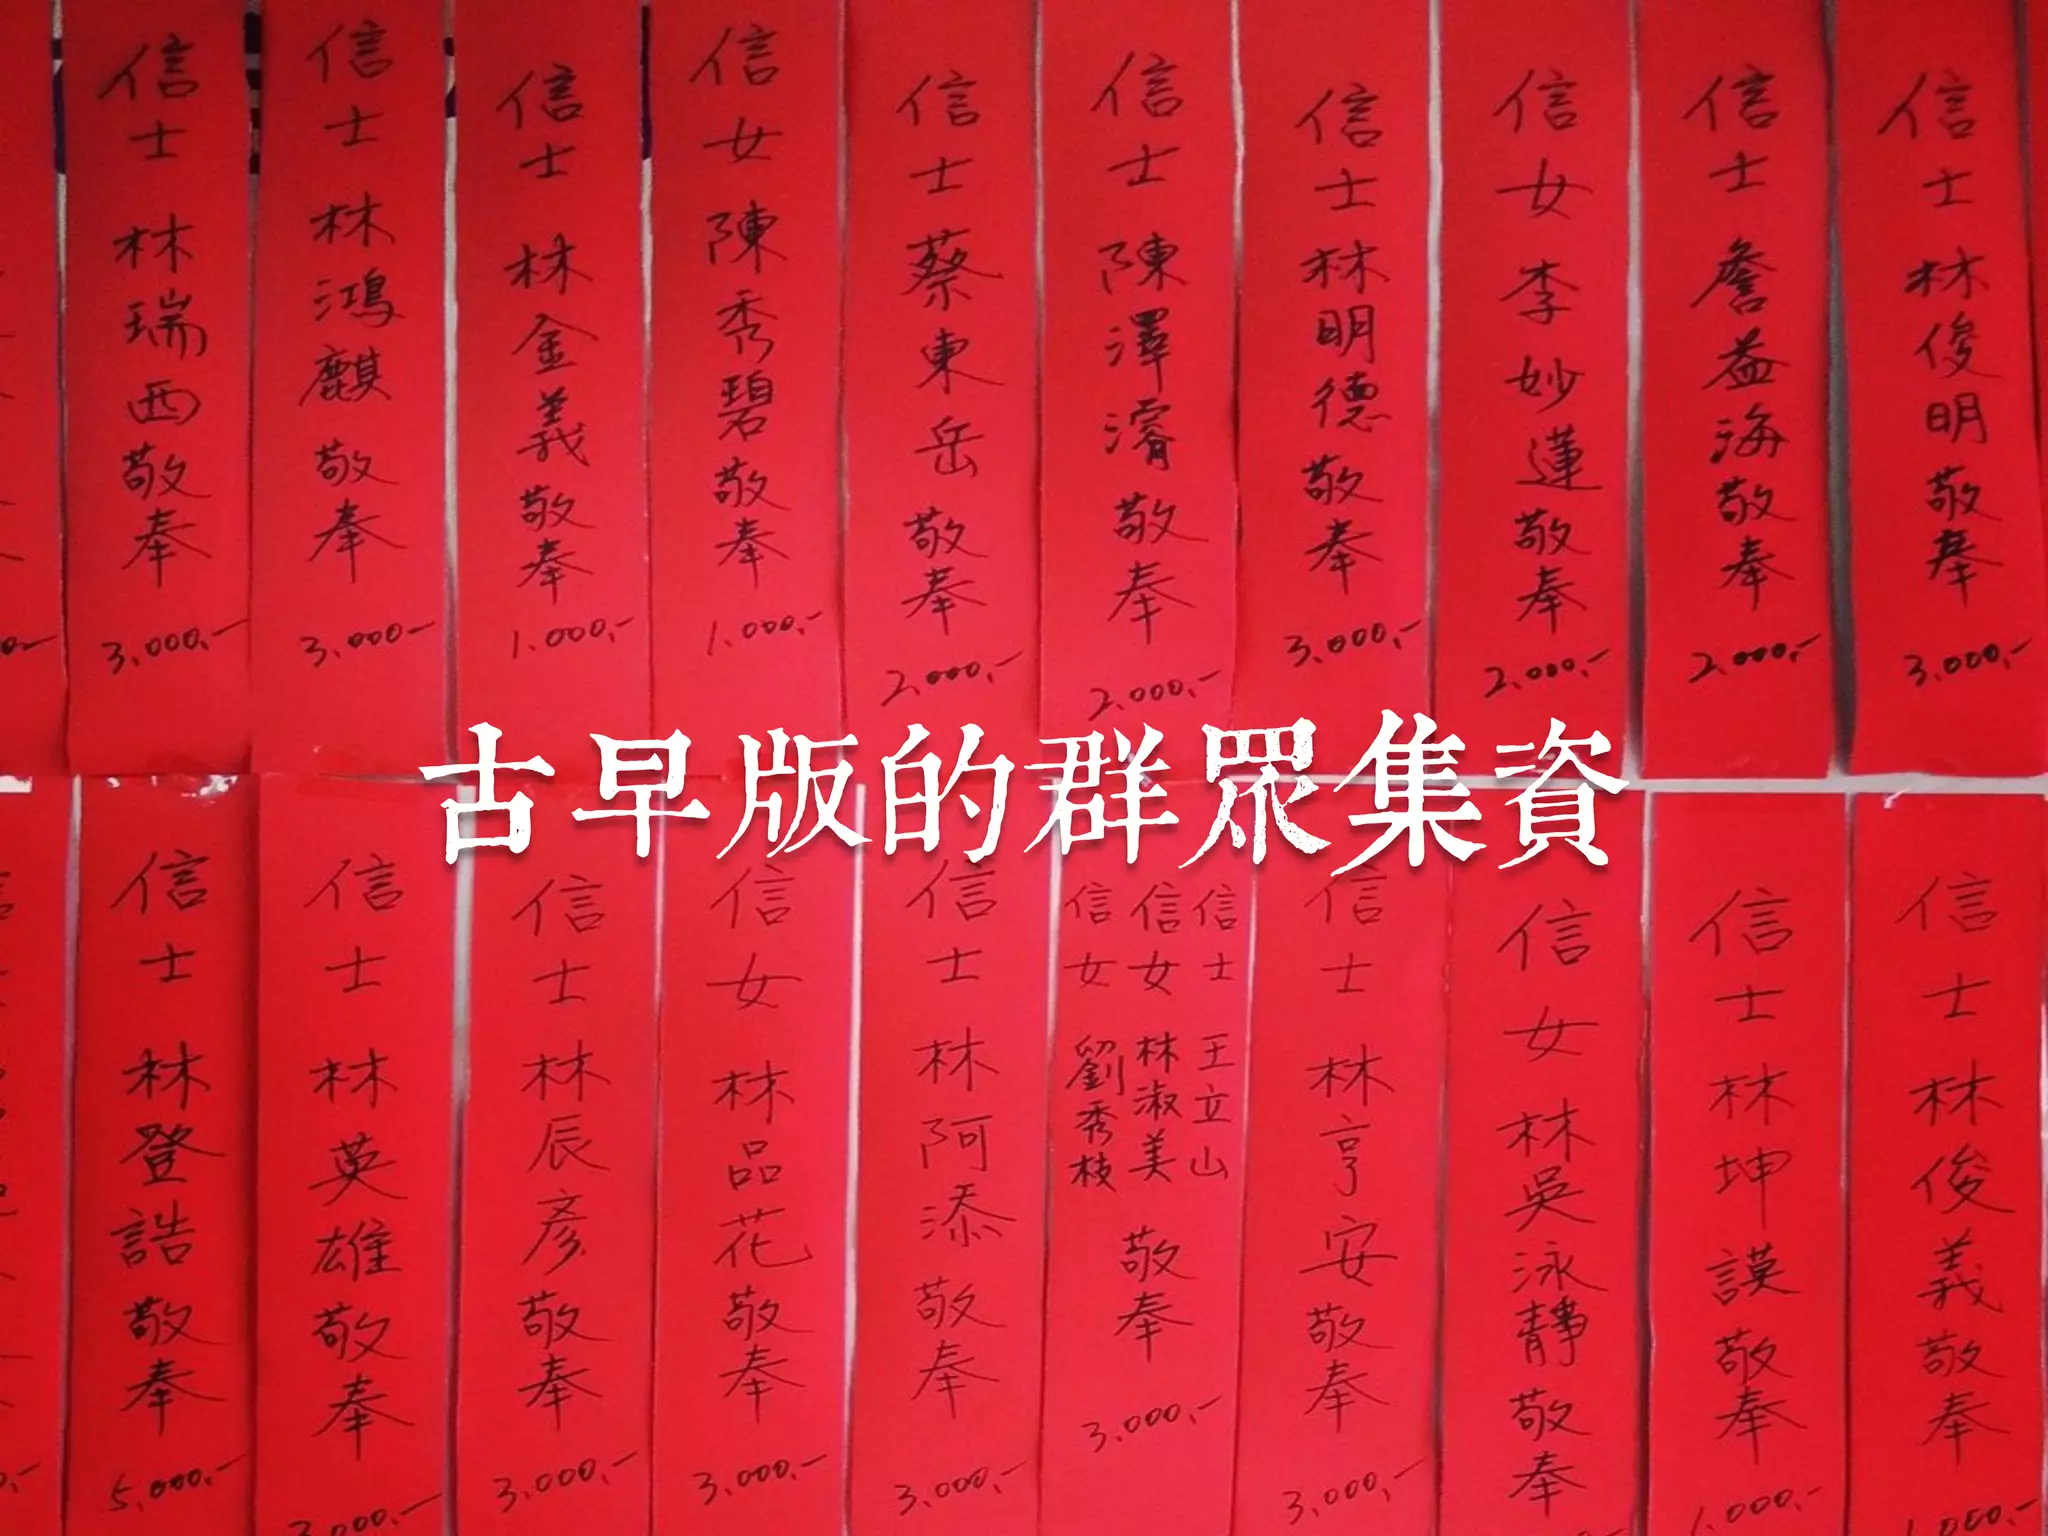 信士 林俊明 敬奉 3,000.-
信士 詹益海 敬奉 2,000.-
信女 李妙蓮 敬奉 2,000.-
信士 林明德 敬奉 3,000.-
信士 陳澤濬 敬奉 2,000.-
信士 蔡東岳 敬奉 2,000.-
信女 陳秀碧 敬奉 1.000.-
信士 林金義 敬奉 1.000.-
信士 林鴻麒 敬奉 3,000-
信士 林瑞西 敬奉 3,000.-
古早版的群眾集資
信士 林俊義 敬奉
信士 林坤謨 敬奉 1.000.-
信女 林吳泳靜 敬奉
信士 林亨安 敬奉 3,000.-
信士 王立山
信女 林淑美
信女 劉秀枝
敬奉 3,000.-
信士 林阿添 敬奉 3,000.-
信女 林品花 敬奉 3,000.-
信士 林辰彥 敬奉 3,000.-
信士 林英雄 敬奉 3,000.-
信士 林登誥 敬奉 5,000.-